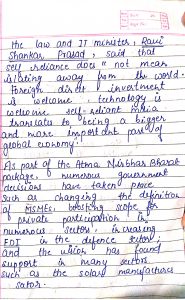 the law and IT minister, Ravi
Shankar Prasad, said that
self reliance does "not mean
isolating away from the world.
Foreign direct investment
is welcome, technology is
welcome self-reliant India
translate to being a bigger
and more important part of
global economy."
As part of the Atma Nirbhar Bharat
package, numerous government
decisions have taken prove
such as changing the definition
of MSMEs, boosting scope for
private participation in
numerous sectors, increasing
FDI in the defence sector,
and the vision has found
support in many sectors
such as the solar manufactures
sator.